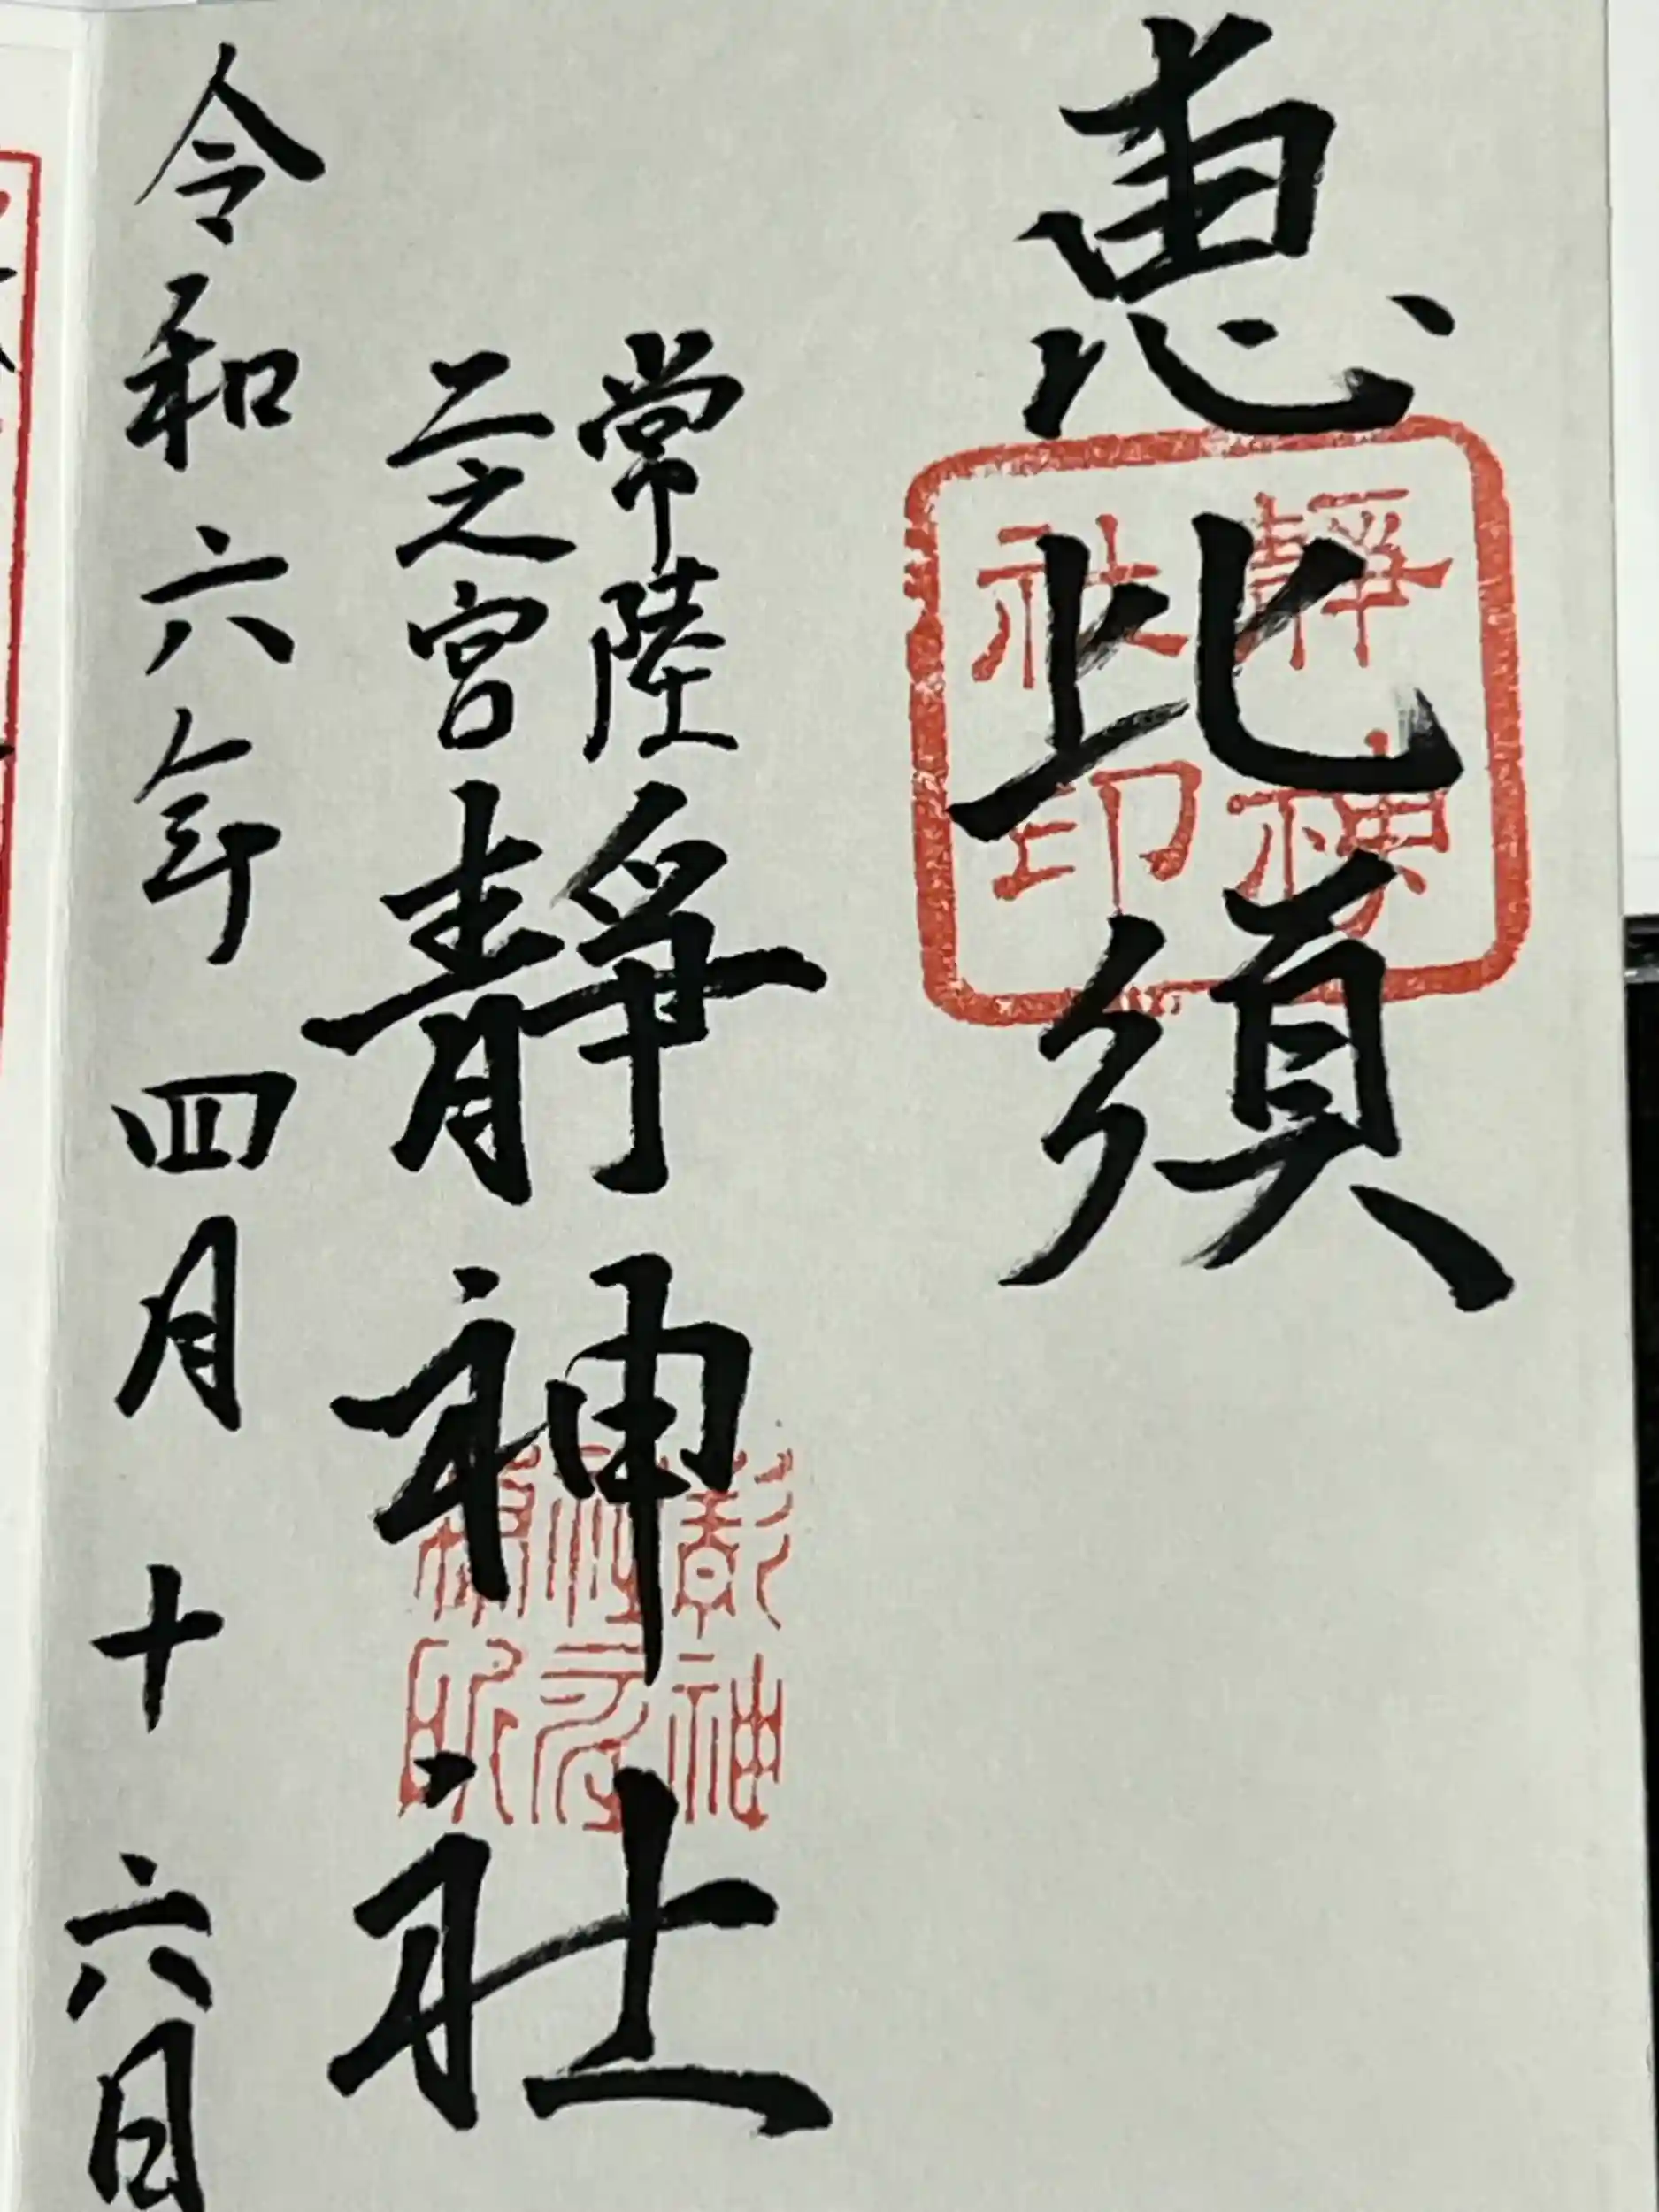 恵比須
靜神
社印
常陸
二之宮
靜神社
令和六年四月十六日